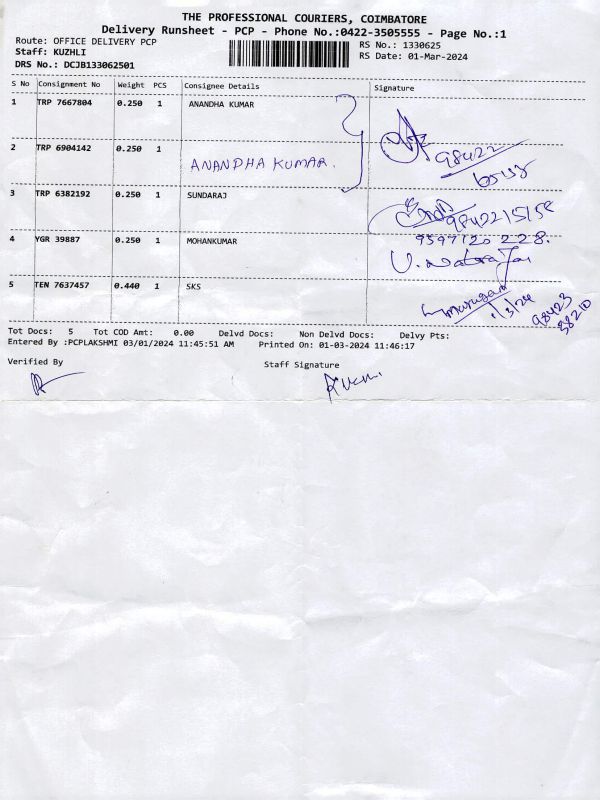 THE PROFESSIONAL COURIERS, COIMBATORE
Delivery Runsheet - PCP - Phone No.:0422-3505555 - Page No.:1
Route: OFFICE DELIVERY PCP
Staff: KUZHLI
DRS No.: DCJB133062501
RS No.: 1330625
RS Date: 01-Mar-2024
S No Consignment No Weight PCS Consignee Details Signature
1 TRP 7667804 0.250 1 ANANDHA KUMAR
2 TRP 6904142 0.250 1 ANANDHA KUMAR.
98422
3 TRP 6382192 0.250 1 SUNDARAJ
4 YGR 39887 0.250 1 MOHANKUMAR
5 TEN 7637457 0.440 1 SKS
Murugan
1/3/24
98423
38210
Tot Docs: 5 Tot COD Amt: 0.00 Delvd Docs: Non Delvd Docs: Delvy Pts:
Entered By :PCPLAKSHMI 03/01/2024 11:45:51 AM Printed On: 01-03-2024 11:46:17
Verified By
Staff Signature